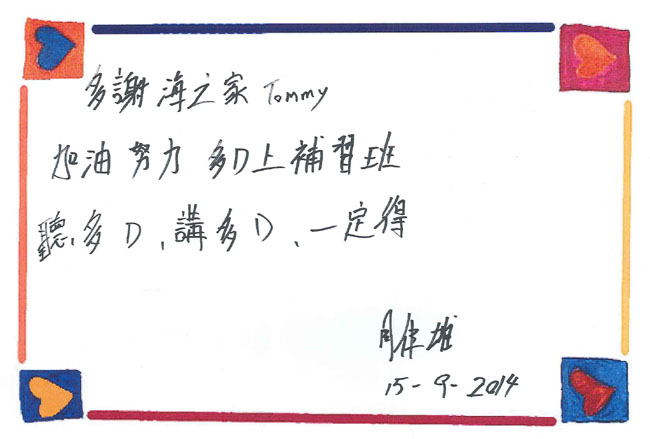 多謝海之家 Tommy
加油努力 多D上補習班
聽多D、講多D、一定得
周偉雄
15-9-2014